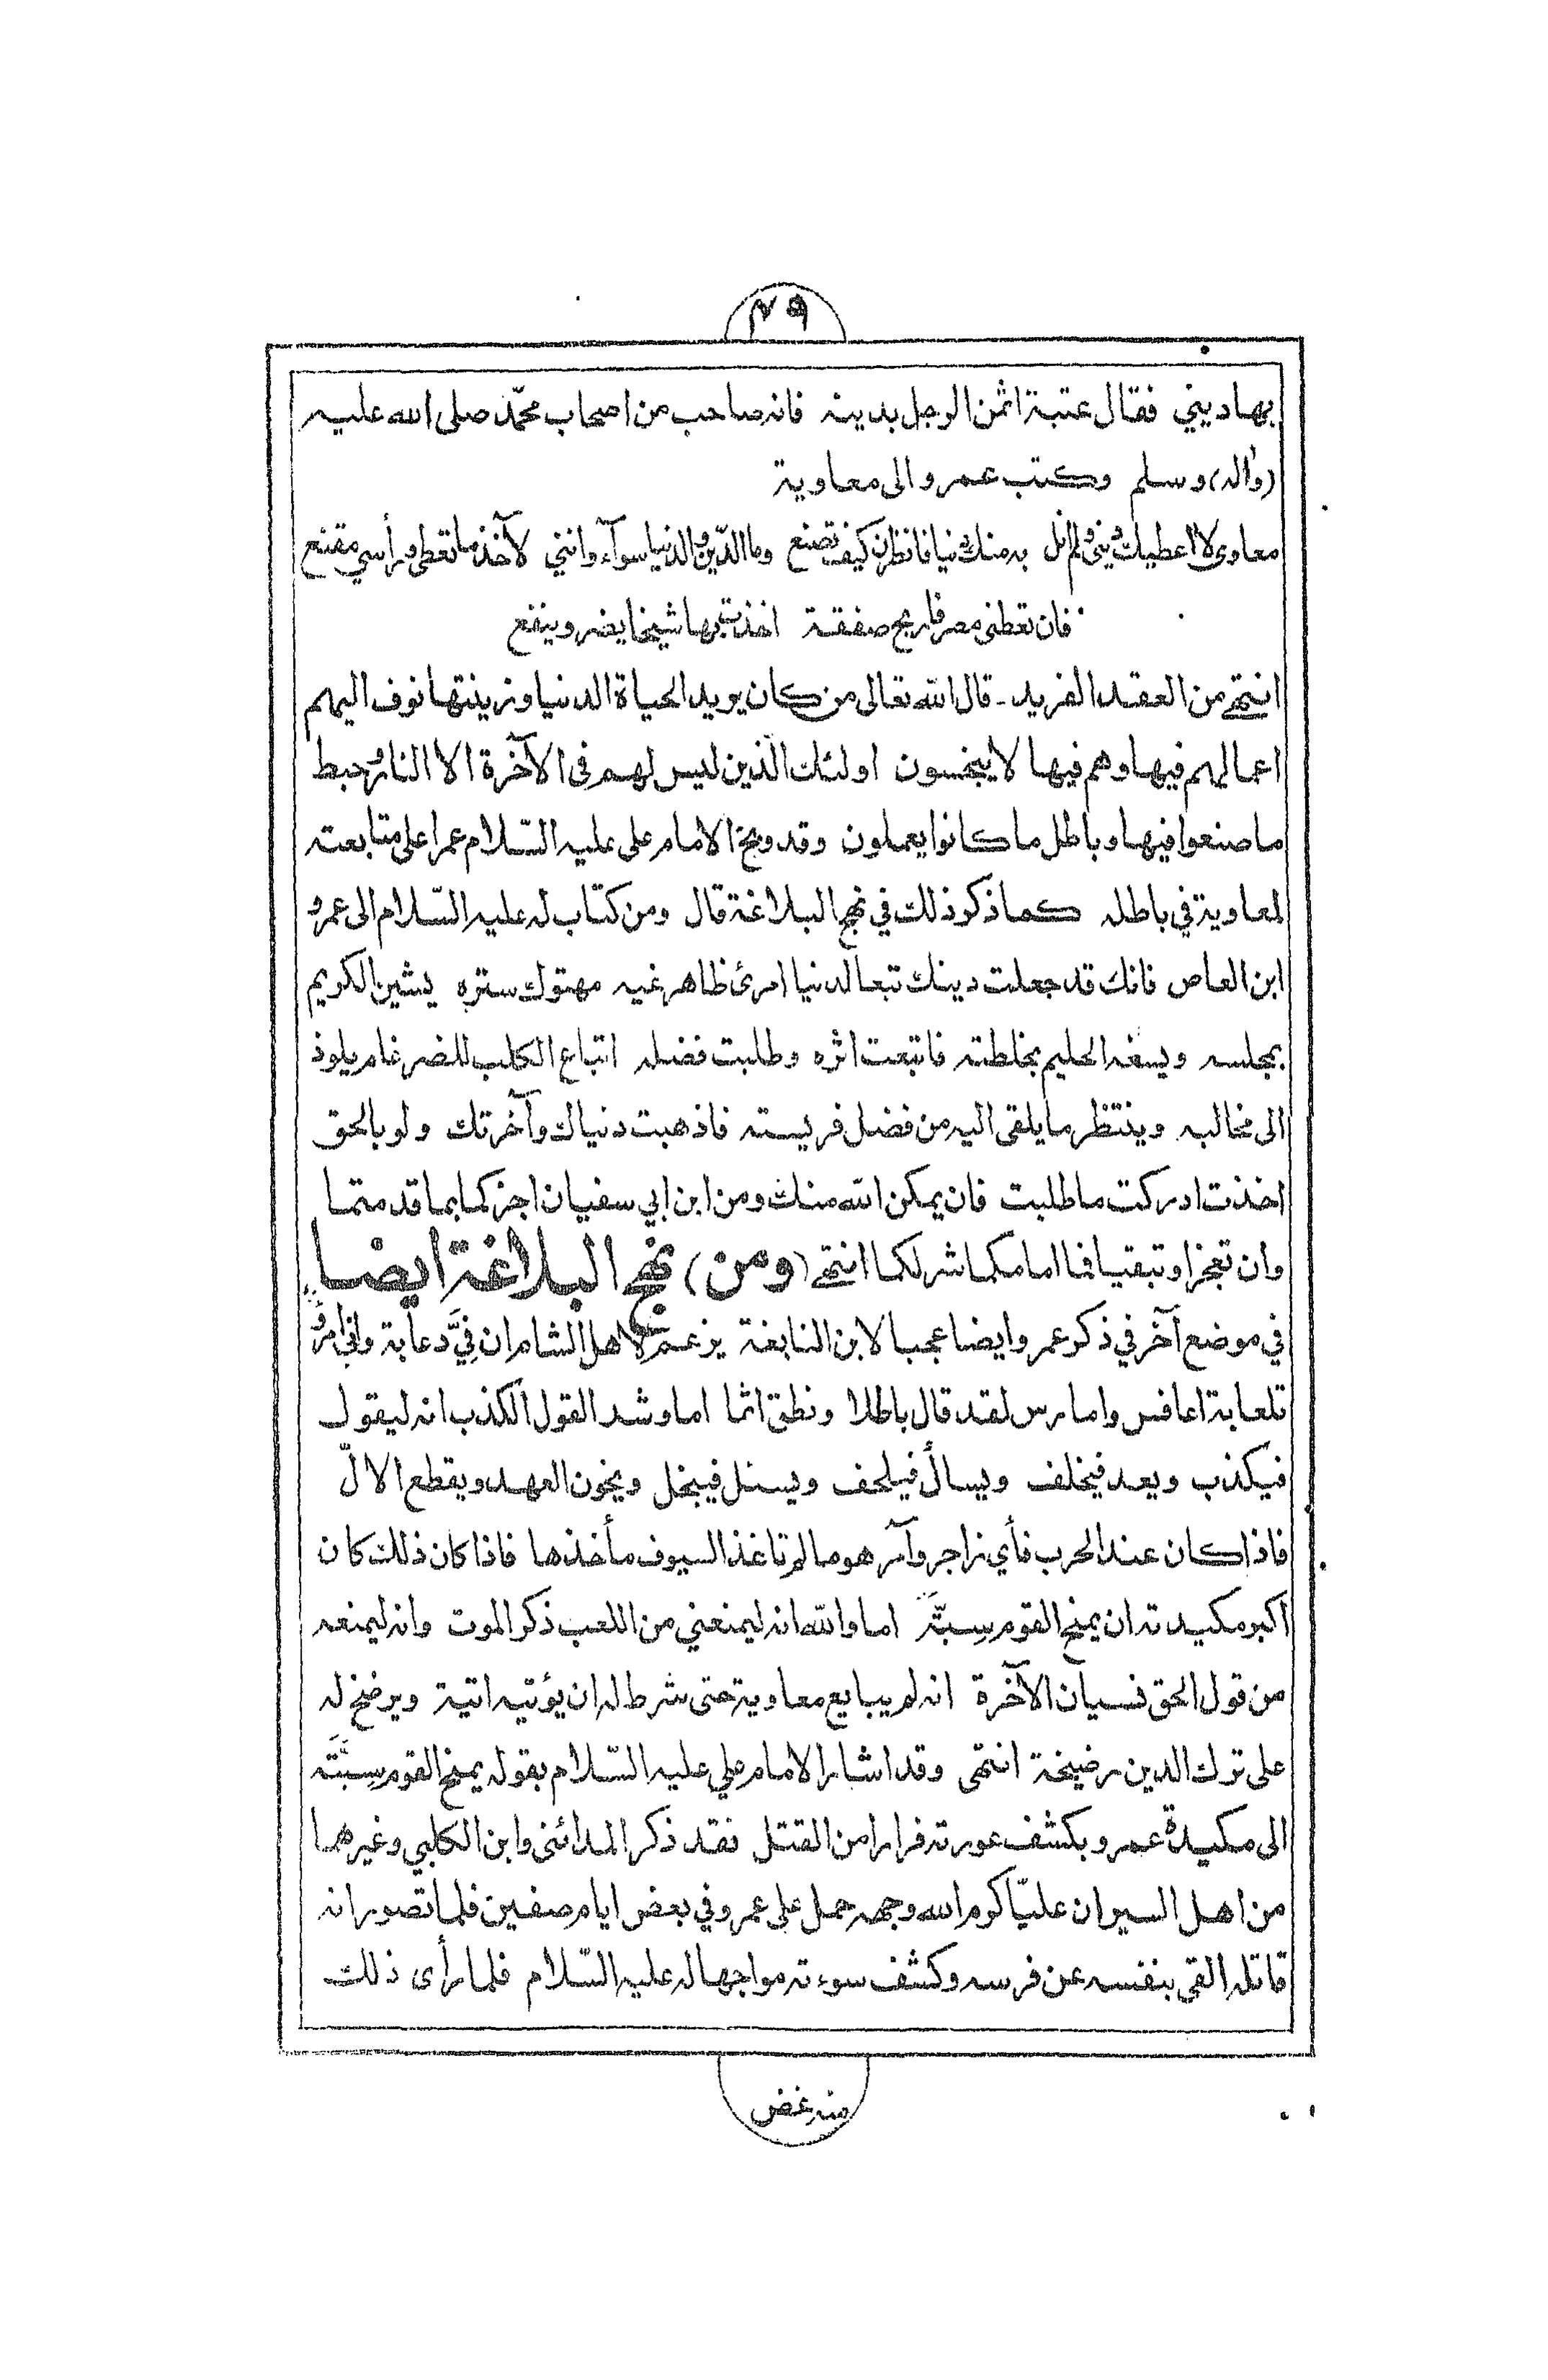 ٤٩
بها ديني فقال عتبة اثمن الرجل بدينه فانه صاحب من اصحاب محمّد صلى الله عليه
(وآله) وسلم وكتب عمرو الى معاوية
معاوي لا اعطيك ديني ولم انل به منك دنيا فانظرن كيف تصنع وما الدّين والدنيا سوآء وانني لآخذ ما تعطي ورأسي مقنع
فان تعطني مصرا فاربح صفقة اخذت بها شيخا يضر وينفع
انتهى من العقد الفريد ـ قال الله تعالى من كان يريد الحياة الدنيا وزينتها نوف اليهم
اعمالهم فيها وهم فيها لا يبخسون اولئك الّذين ليس لهم في الآخرة الا النار وحبط
ما صنعوا فيها وباطل ما كانوا يعملون وقد وبخ الامام علي عليه السّلام عمرا على متابعته
لمعاوية في باطله كما ذكر ذلك في نهج البلاغة قال ومن كتاب له عليه السّلام الى عمرو
ابن العاص فانك قد جعلت دينك تبعا لدنيا امرئ ظاهر غيه مهتوك ستره يشين الكريم
بمجلسه ويسفه الحليم بخلطته فاتبعت اثره وطلبت فضله اتباع الكلب للضرغام يلوذ
الى مخالبه وينتظر ما يلقى اليه من فضل فريسته فاذهبت دنياك وآخرتك ولو بالحق
اخذت ادركت ما طلبت فان يمكن الله منك ومن ابن ابي سفيان اجزكما بما قدمتما
وان تعجزا وتبقيا فما امامكما شر لكما انتهى (ومن) نهج البلاغة ايضا
في موضع آخر في ذكر عمرو ايضا عجبا لابن النابغة يزعم لاهل الشام ان فيَّ دعابة واني امرؤ
تلعابة اعافس وامارس لقد قال باطلا ونطق اثما اما وشد القول الكذب انه ليقول
فيكذب ويعد فيخلف ويسأل فيلحف ويسئل فيبخل ويخون العهد ويقطع الالّ
فاذا كان عند الحرب فأي زاجر وآمر هو ما لم تاخذ السيوف مأخذها فاذا كان ذلك كان
اكبر مكيدته ان يمنح القوم سِبتَّه اما والله انه ليمنعني من اللعب ذكر الموت وانه ليمنعه
من قول الحق نسيان الآخرة انه لم يبايع معاوية حتى شرط له ان يؤتيه اتية ويرضخ له
على ترك الدين رضيخة انتهى وقد اشار الامام علي عليه السّلام بقوله يمنح القوم سِبَّتَه
الى مكيدة عمرو بكشف عورته فرارا من القتل فقد ذكر المدائني وابن الكلبي وغيرهما
من اهل السير ان عليّا كرم الله وجهه حمل على عمرو في بعض ايام صفين فلما تصور انه
قاتله القى بنفسه عن فرسه وكشف سوءته مواجها له عليه السّلام فلما رأى ذلك
منه غض